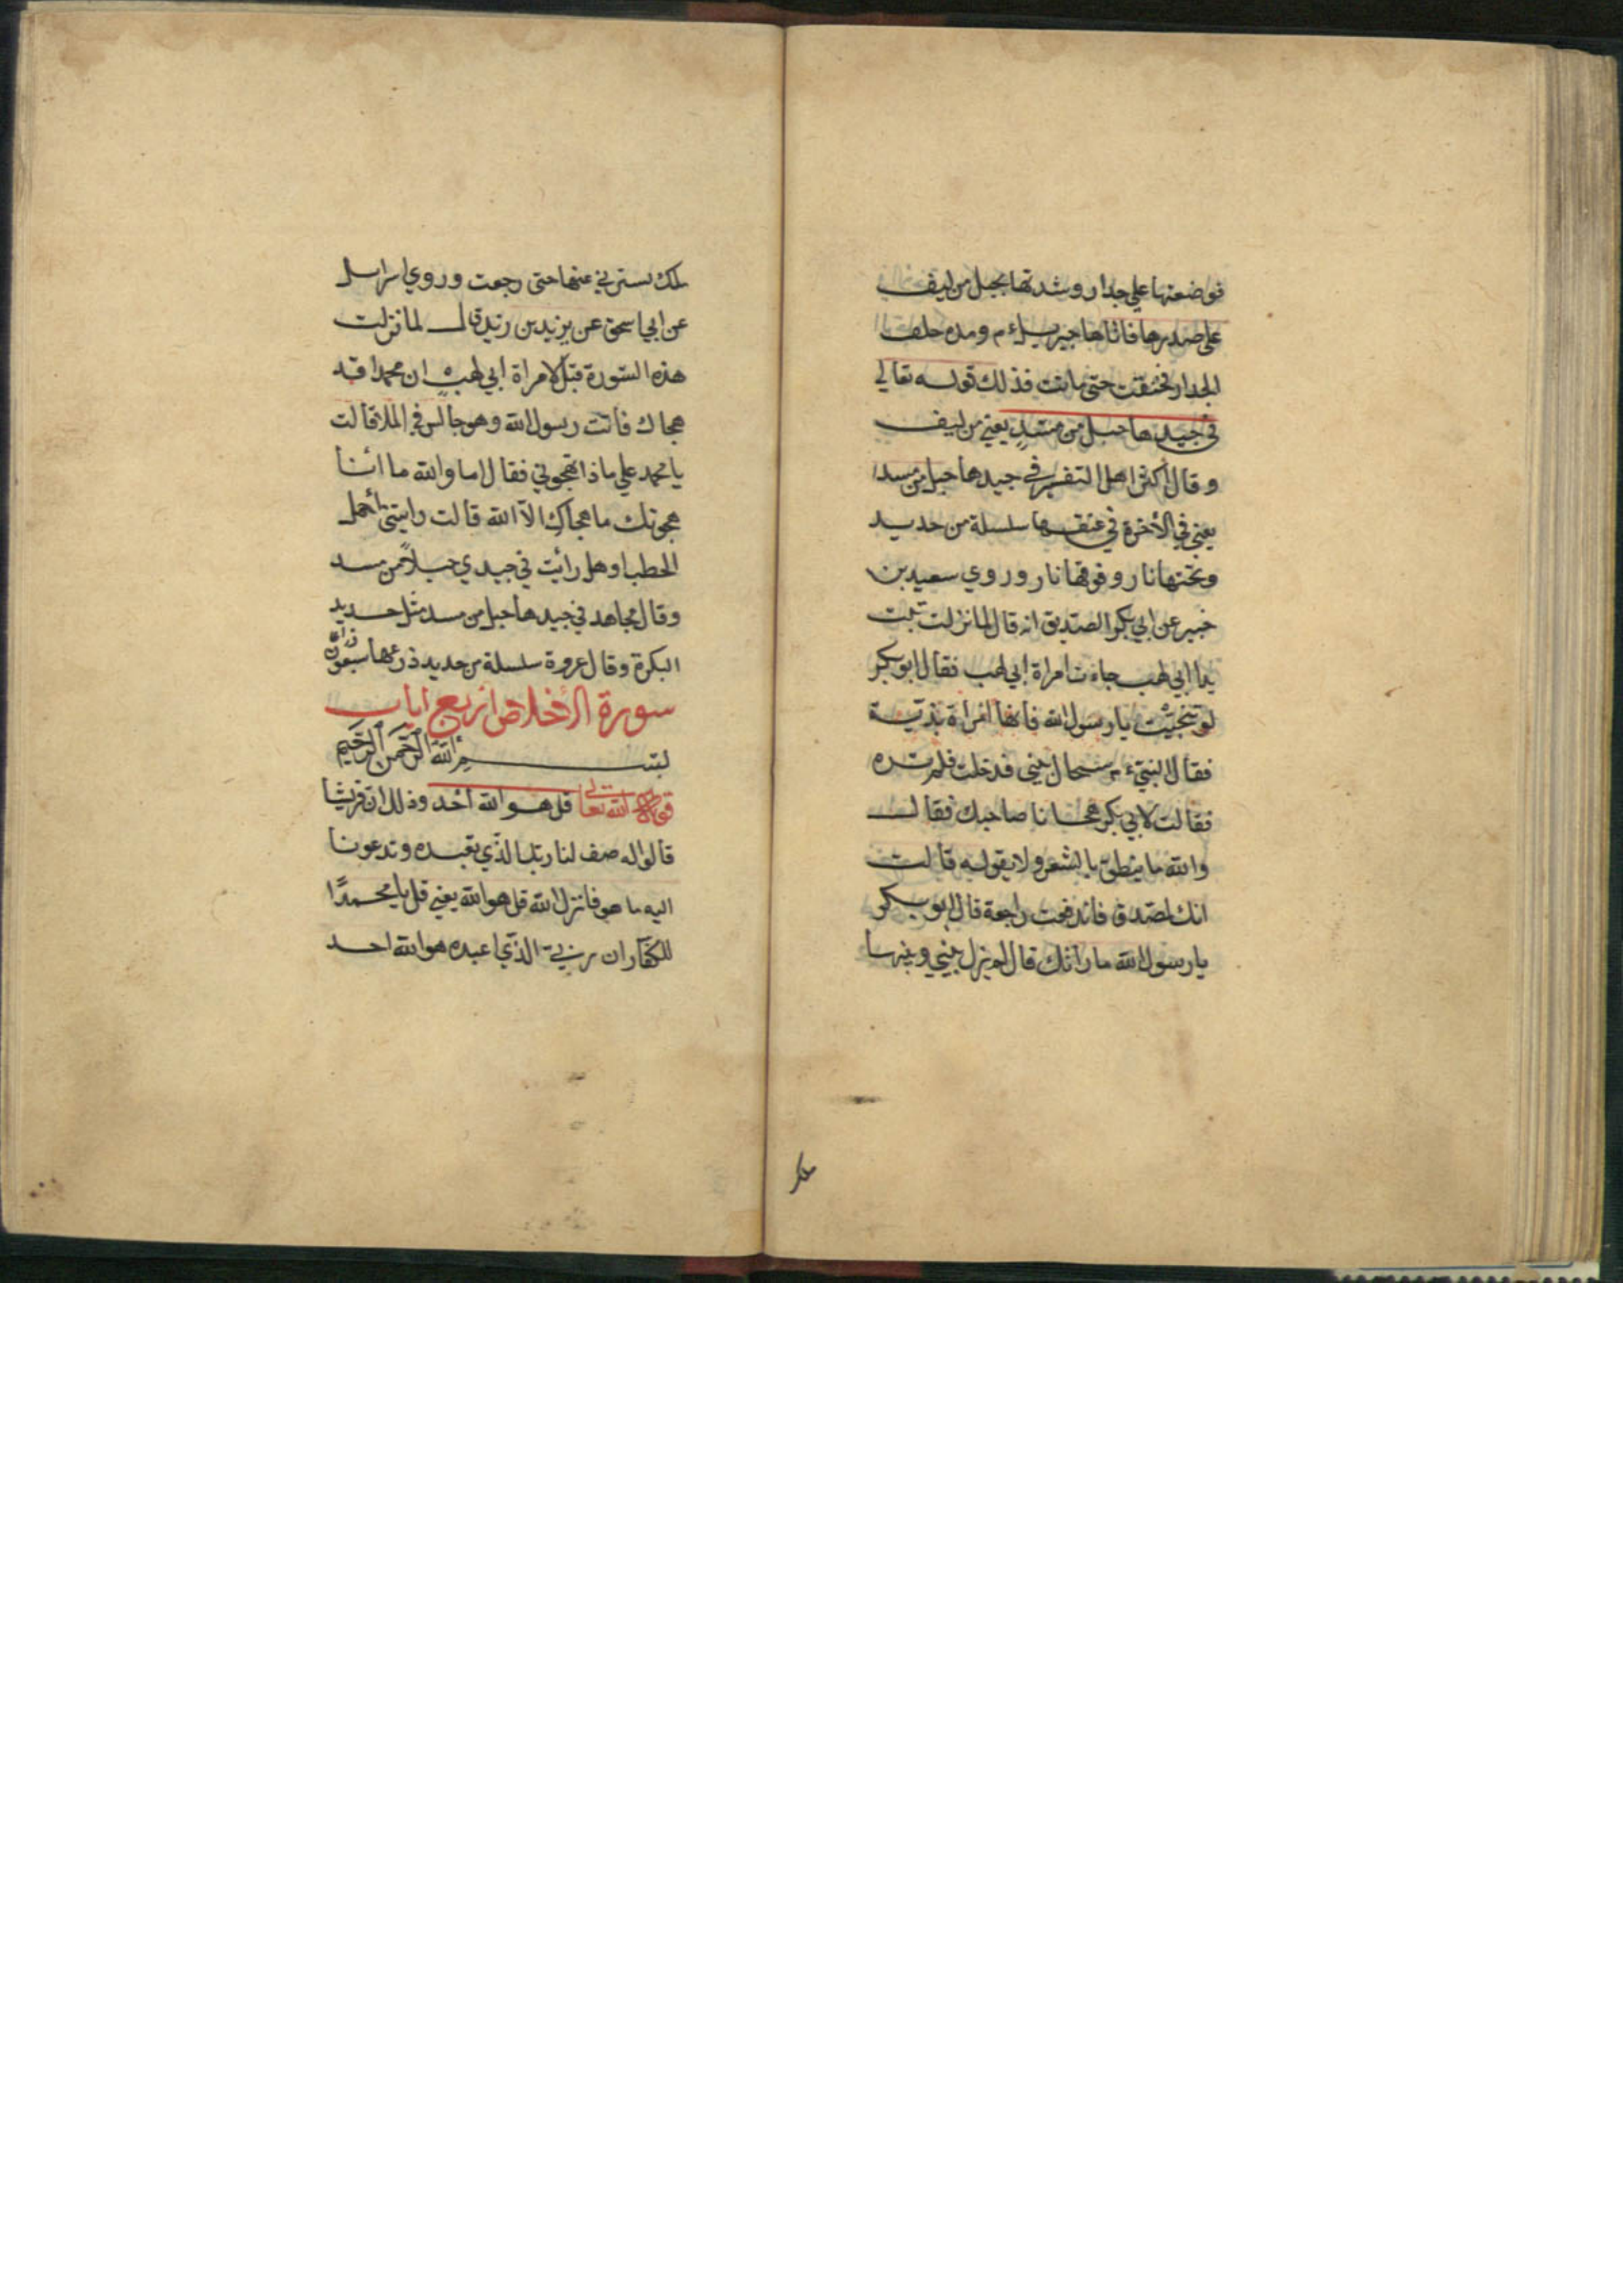 فوضعتها علي جدار وشدتها بحبل من ليف
علي صدرها فاتاها جبريل ءم ومده خلف
الجدار فخنقت حتى ماتت فذلك قوله تعالي
في جيدها حبل من مسد يعني من ليف
وقال اكثر اهل التفسير في جيدها حبل من مسد
يعني في الأخرة في عنقها سلسلة من حديد
وتحتها نار وفوقها نار وروي سعيد بن
جبير عن ابي بكر الصديق انه قال لما نزلت تبت
يدا ابي لهب جاءت امراة ابي لهب فقال ابو بكر
لو تنحيت يا رسول الله فانها امراة بذية
فقال النبي ءم سيحال بيني فدخلت فلم تره
فقالت لابي بكر هجانا صاحبك فقال
والله ما ينطق بالشعر ولا يقوله قالت
انك لمصدق فاندفعت راجعة قال ابو بكر
يا رسول الله ما رأتك قال لم يزل بيني وبينها
ملك
ملك يسترني عنها حتى رجعت وروي اسرايل
عن ابي اسحق عن يزيد بن زيد قال لما نزلت
هذه السورة قيل لامراة ابي لهب ان محمدا قد
هجاك فاتت رسول الله وهو جالس في الملا قالت
يا محمد علي ماذا تهجوني فقال اما والله ما انا
هجوتك ما هجاك الا الله قالت رايتني أحمل
الحطب او هل رأيت في جيدي حبلاً من مسد
وقال مجاهد في جيدها حبل من مسد مثل حديد
البكرة وقال عروة سلسلة من حديد ذرعها سبعون ذراعا
سورة الأخلاص اربع ايات
بسم الله الرحمن الرحيم
قوله الله تعالي قل هو الله أحد وذلك ان قريشا
قالوا له صف لنا ربك الذي تعبده وتدعونا
اليه ما هو فانزل الله قل هو الله يعني قل يا محمدًا
للكفار ان ربي الذي اعبده هو الله احد